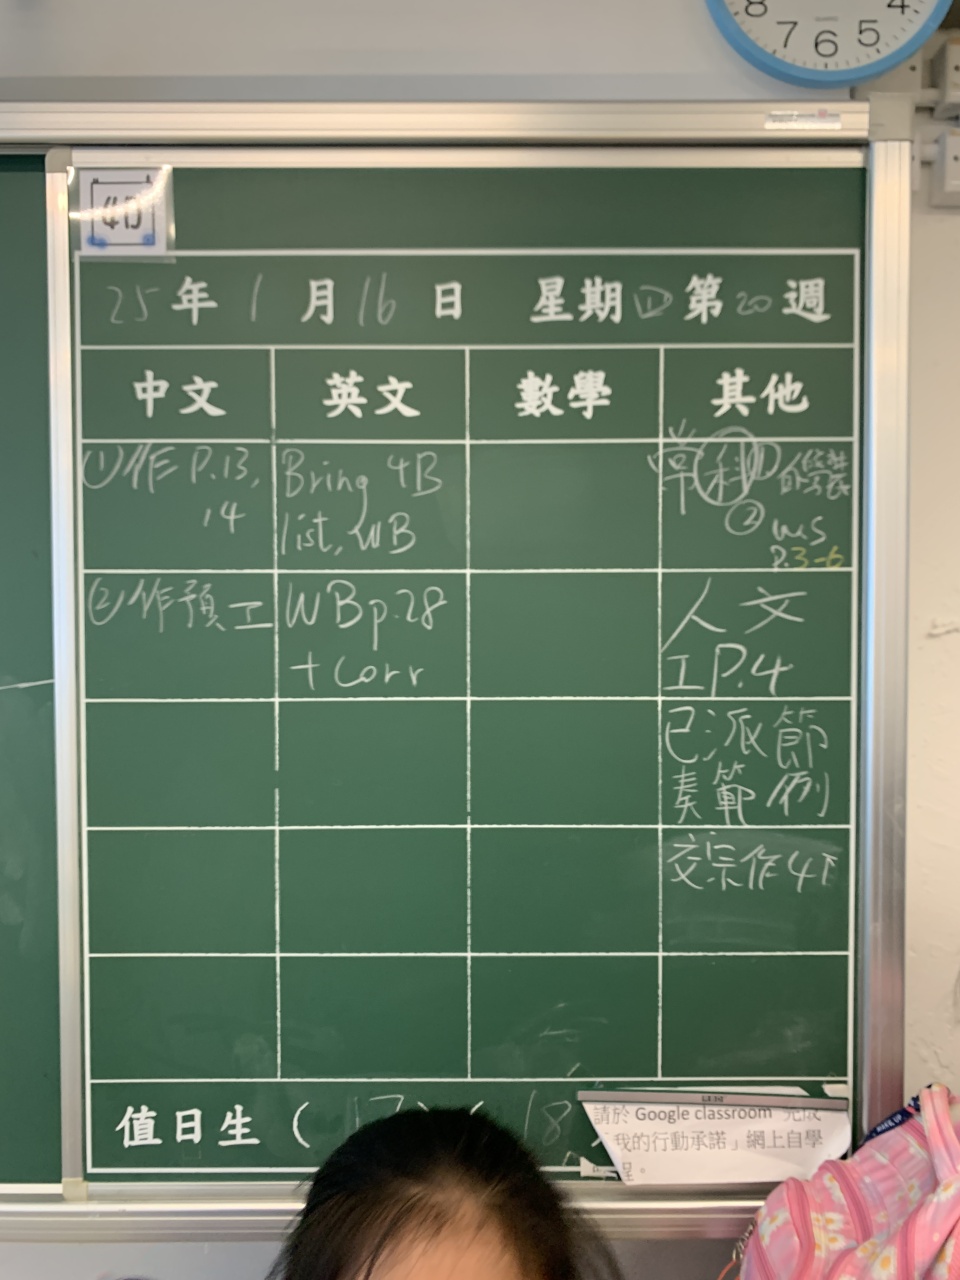 8 7 6 5 4
4D
25 年 1 月 16 日 星期四 第 20 週
中文 英文 數學 其他
①作 P.13,
14
Bring 4B
list, WB
常 科 ①
② WS
P.3-6
②作預工
WB p.28
+ Corr
人文
工 P.4
已派節
奏範例
交宗作4下
值日生 ( 17 ) ( 18
請於 Google classroom 完成
我的行動承諾」網上自學
程。